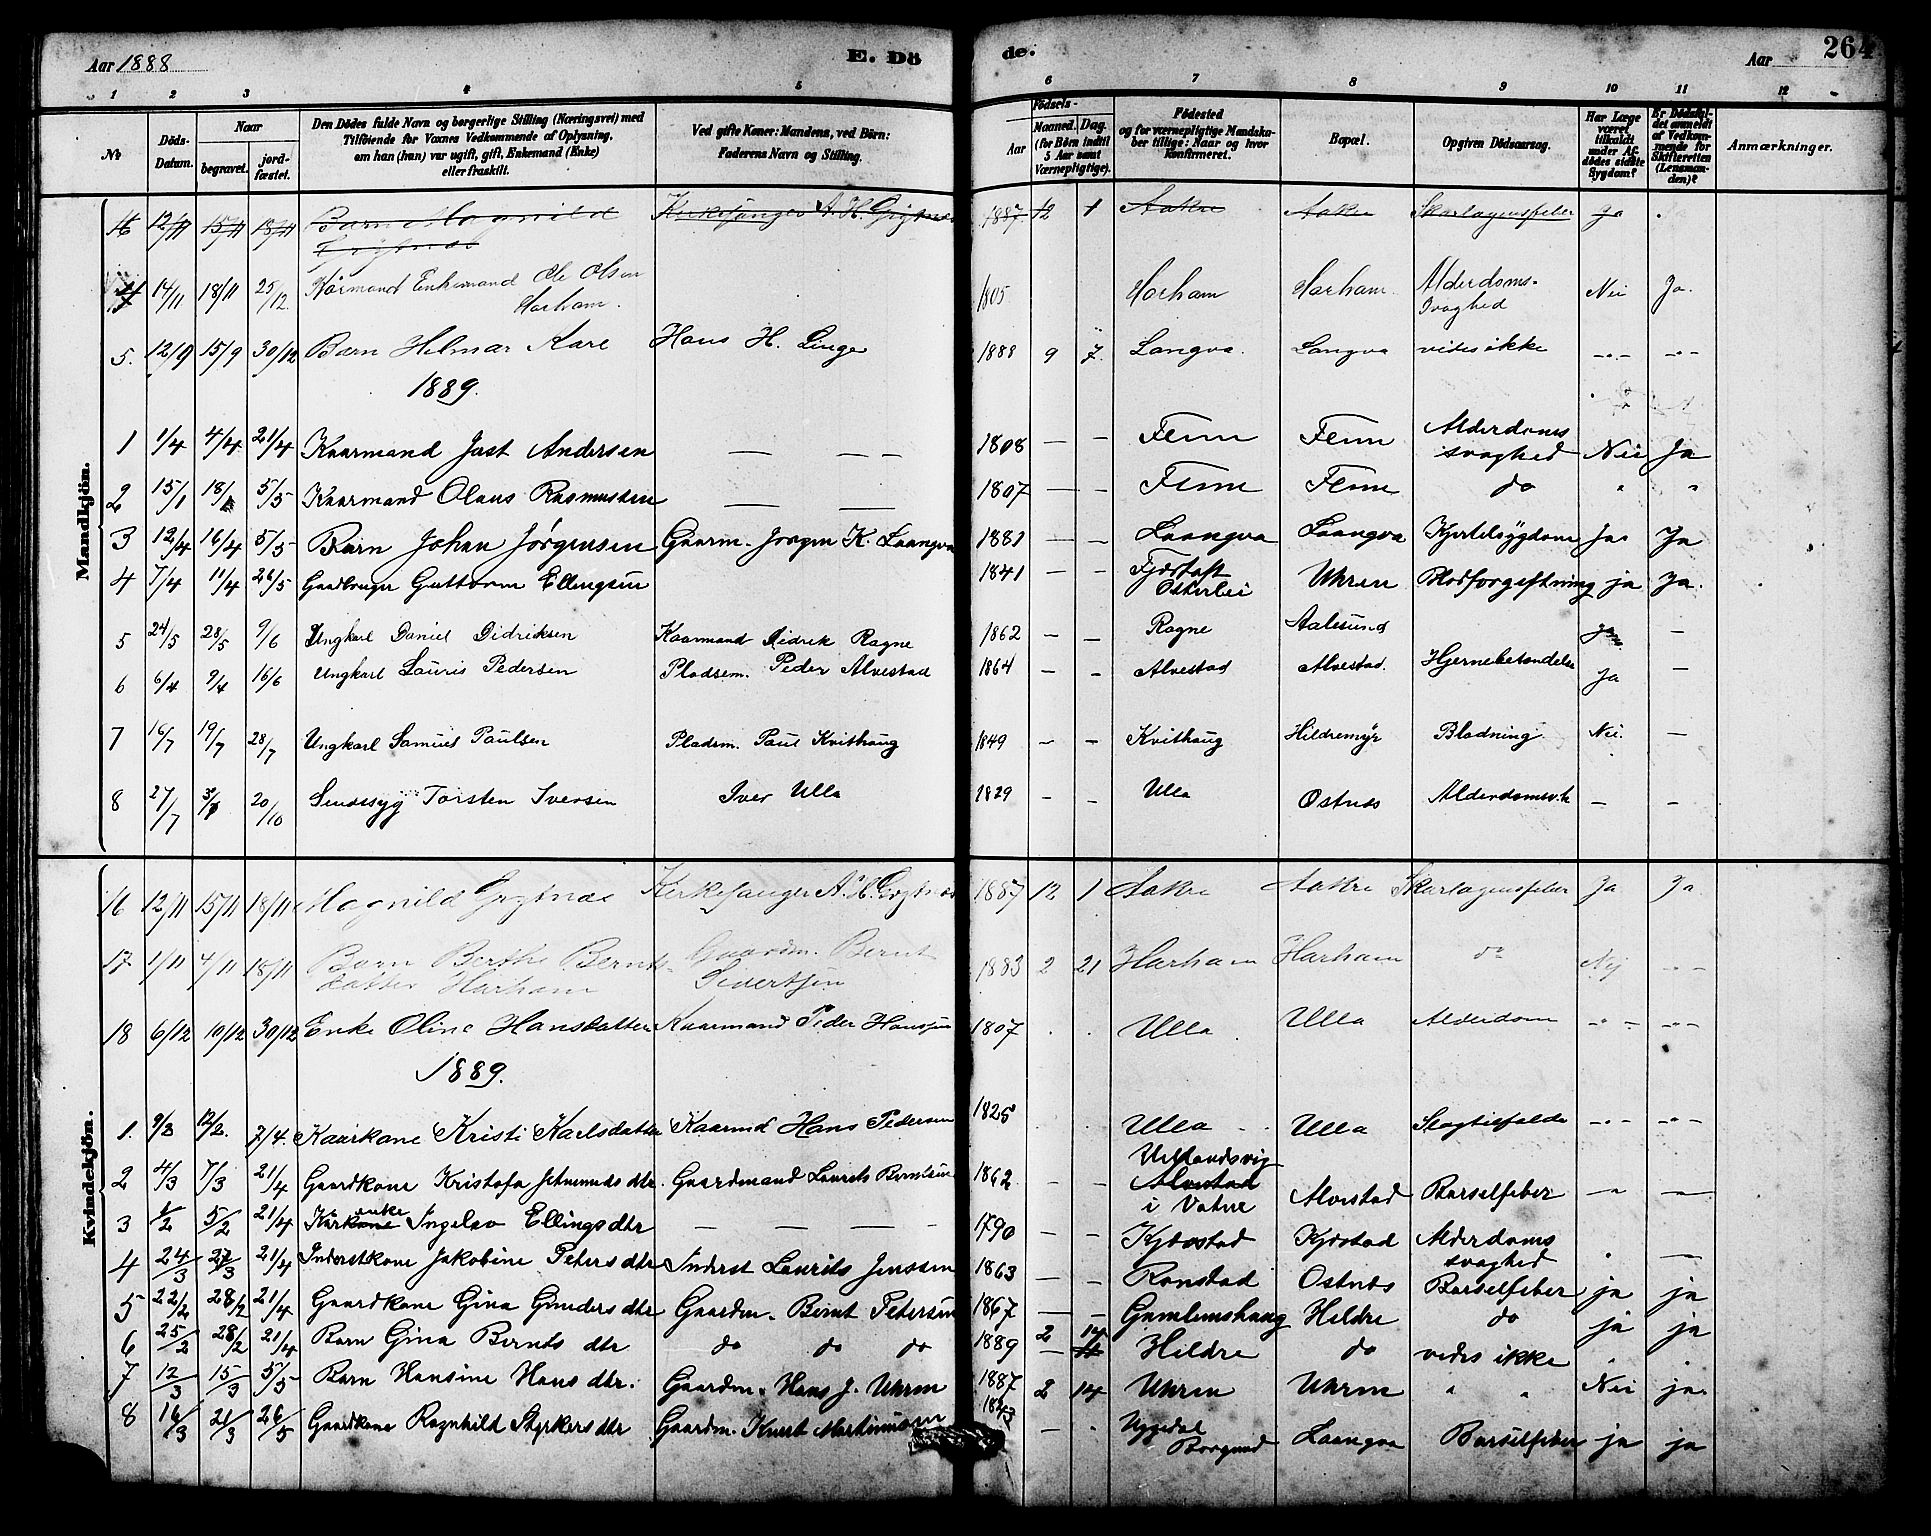 Aar 1888 E. Dö de. Aar 264
1 2 3 4 5 6 7 8 9 10 11 12
№ Döds-Datum. Naar begravet. jord-fæstet. Den Dödes fulde Navn og borgerlige Stilling (Næringsvei) med Tilföiende for Voxnes Vedkommende af Oplysning, om han (hun) var ugift, gift, Enkemand (Enke) eller fraskilt. Ved gifte Koner: Mandens, ved Börn: Faderens Navn og Stilling. Födsels- Aar Maaned. Dag. (for Börn indtil 5 Aar samt Værnepligtige). Födested og for værnepligtige Mandskaber tillige: Naar og hvor konfirmeret. Bopæl. Opgiven Dödsaarsag. Har Læge været tilkaldt under Afdödes sidste Sygdom? Er Dödsfaldet anmeldt af Vedkommende for Skifteretten (Lensmanden)? Anmærkninger.
Mandkjön.
16 12/11 15/11 18/11 Barn Magnild Grytnæs Kirkesanger A. H. Grytnæs 1887 12 1 Aakre Aakre Skarlagensfeber Ja
14/11 18/11 25/12 Kårmand Enkemand Ole Olsen Harham. 1805 Harham Harham Alderdoms-svaghed Nei Ja.
5. 12/9 15/9 30/12 Barn Hilmar Kare Hans H. Linge 1888 9 7. Langva. Langva vides ikke -"- -"-
1889.
1 1/4 4/4 21/4 Kaarmand Jost Andersen — — — 1808 — — Fem Fem Alderdoms svaghed Nei Ja
2 15/1 18/1 5/5 Kaarmand Olaus Rasmussen — — 1807 — — Fem Fem do " "
3 12/4 16/4 5/5 Barn Johan Jørgensen Gaarm. Jørgen K. Laangva 1881 — — Laangva Laangva Kjertelsygdom Ja Ja
4 7/4 11/4 26/5 Gaardbruger Guttorm Ellingsen 1841 — — Fjørtoft Osterlei Uhren Blodforgiftning ja Ja.
5 24/5 28/5 9/6 Ungkarl Daniel Didriksen Kaarmand Didrek Rogne 1862 — — Rogne Aalesund —
6 6/4 9/4 16/6 Ungkarl Lauris Pedersen Pladsem. Peder Alvestad 1864 — Alvestad Alvestad. Hjernebetændelse Ja —
7 16/7 19/7 28/7 Ungkarl Samuel Paulsen Pladsm. Paul Kvithaug 1849 — — Kvithaug Hildremyr Blødning Nei. —
8 27/7 20/10 Sindssyg Torsten Iversen Iver Ulla 1829 — — Ulla Ostnæs Alderdomsv.h — —
Kvindekjön.
16 12/11 15/11 18/11 Magnild Grytnæs Kirkesanger A. H. Grytnæs 1887 12 1 Aakre Aakre Skarlagensfeber Ja Ja.
17 1/11 4/11 18/11 Barn Berthe Bernts-datter Harham Gaardm. Bernt Sivertsen 1883 2 21 Harham Harham do Nej -"-
18 6/12 10/12 30/12 Enke Oline Hansdatter Kaarmand Peder Hanssen 1807 Ulla Ulla Alderdom -"- -"-
1889.
1. 9/2 12/2. 7/4. Kaarkone Kristi Karlsdatter Kaarmd Hans Pedersen 1825 Ulla Ulla Slagtilfælde -"- -"-
2 4/3 7/3 21/4 Gaardkone Kristofa Jetmunds dtr. Gaardmand Laurits Berntsen 1862 — — Alvestad i Vatne Alvestad Barselfeber — —
3 1/2 5/2 21/4 Kårkone enke Ingeløv Ellings dtr — — — — 1790 — — Kjørstad Kjørstad Alderdoms svaghed —
4 24/3 27/3 21/4 Inderstkone Jakobine Peters dtr Inderst Laurits Jenssen 1863 — — Ronstad Ostnæs Barselfeber ja ja
5 22/2 28/2 21/4 Gaardkone Gina Gunders dtr Gaardm. Bernt Petersen 1867 — — Gamlemshaug Hildre do ja ja
6 25/2 28/2 21/4 Barn Gina Bernts dtr do do do 1889 2 14 Hildre do vides ikke
7 12/3 15/3 5/5 Barn Hansine Hans dtr. Gaardm. Hans J. Uhren 1887 2 14 Uhren Uhren " " Nei ja.
8 16/3 21/3 26/5 Gaardkone Ragnhild Styrkers dtr Gaardm. Knut Martinussen 1843 — Borgund Laangva Barselfeber ja ja